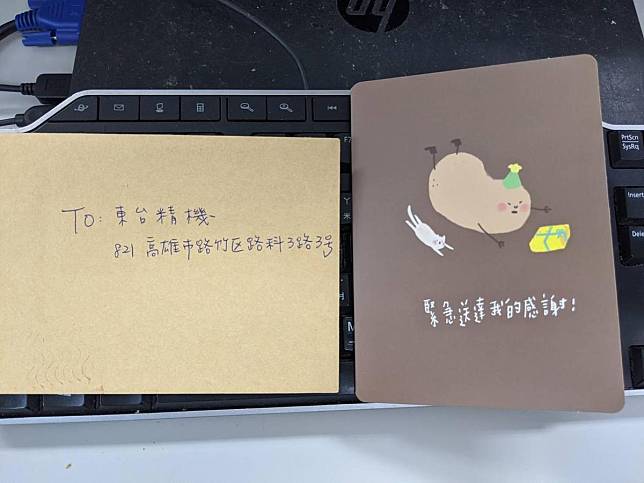 hp
TO: 東台精機
821 高雄市路竹区路科3路3号
緊急送達我的感謝!
PrtScn
SysRq
Insert
Dele
F7